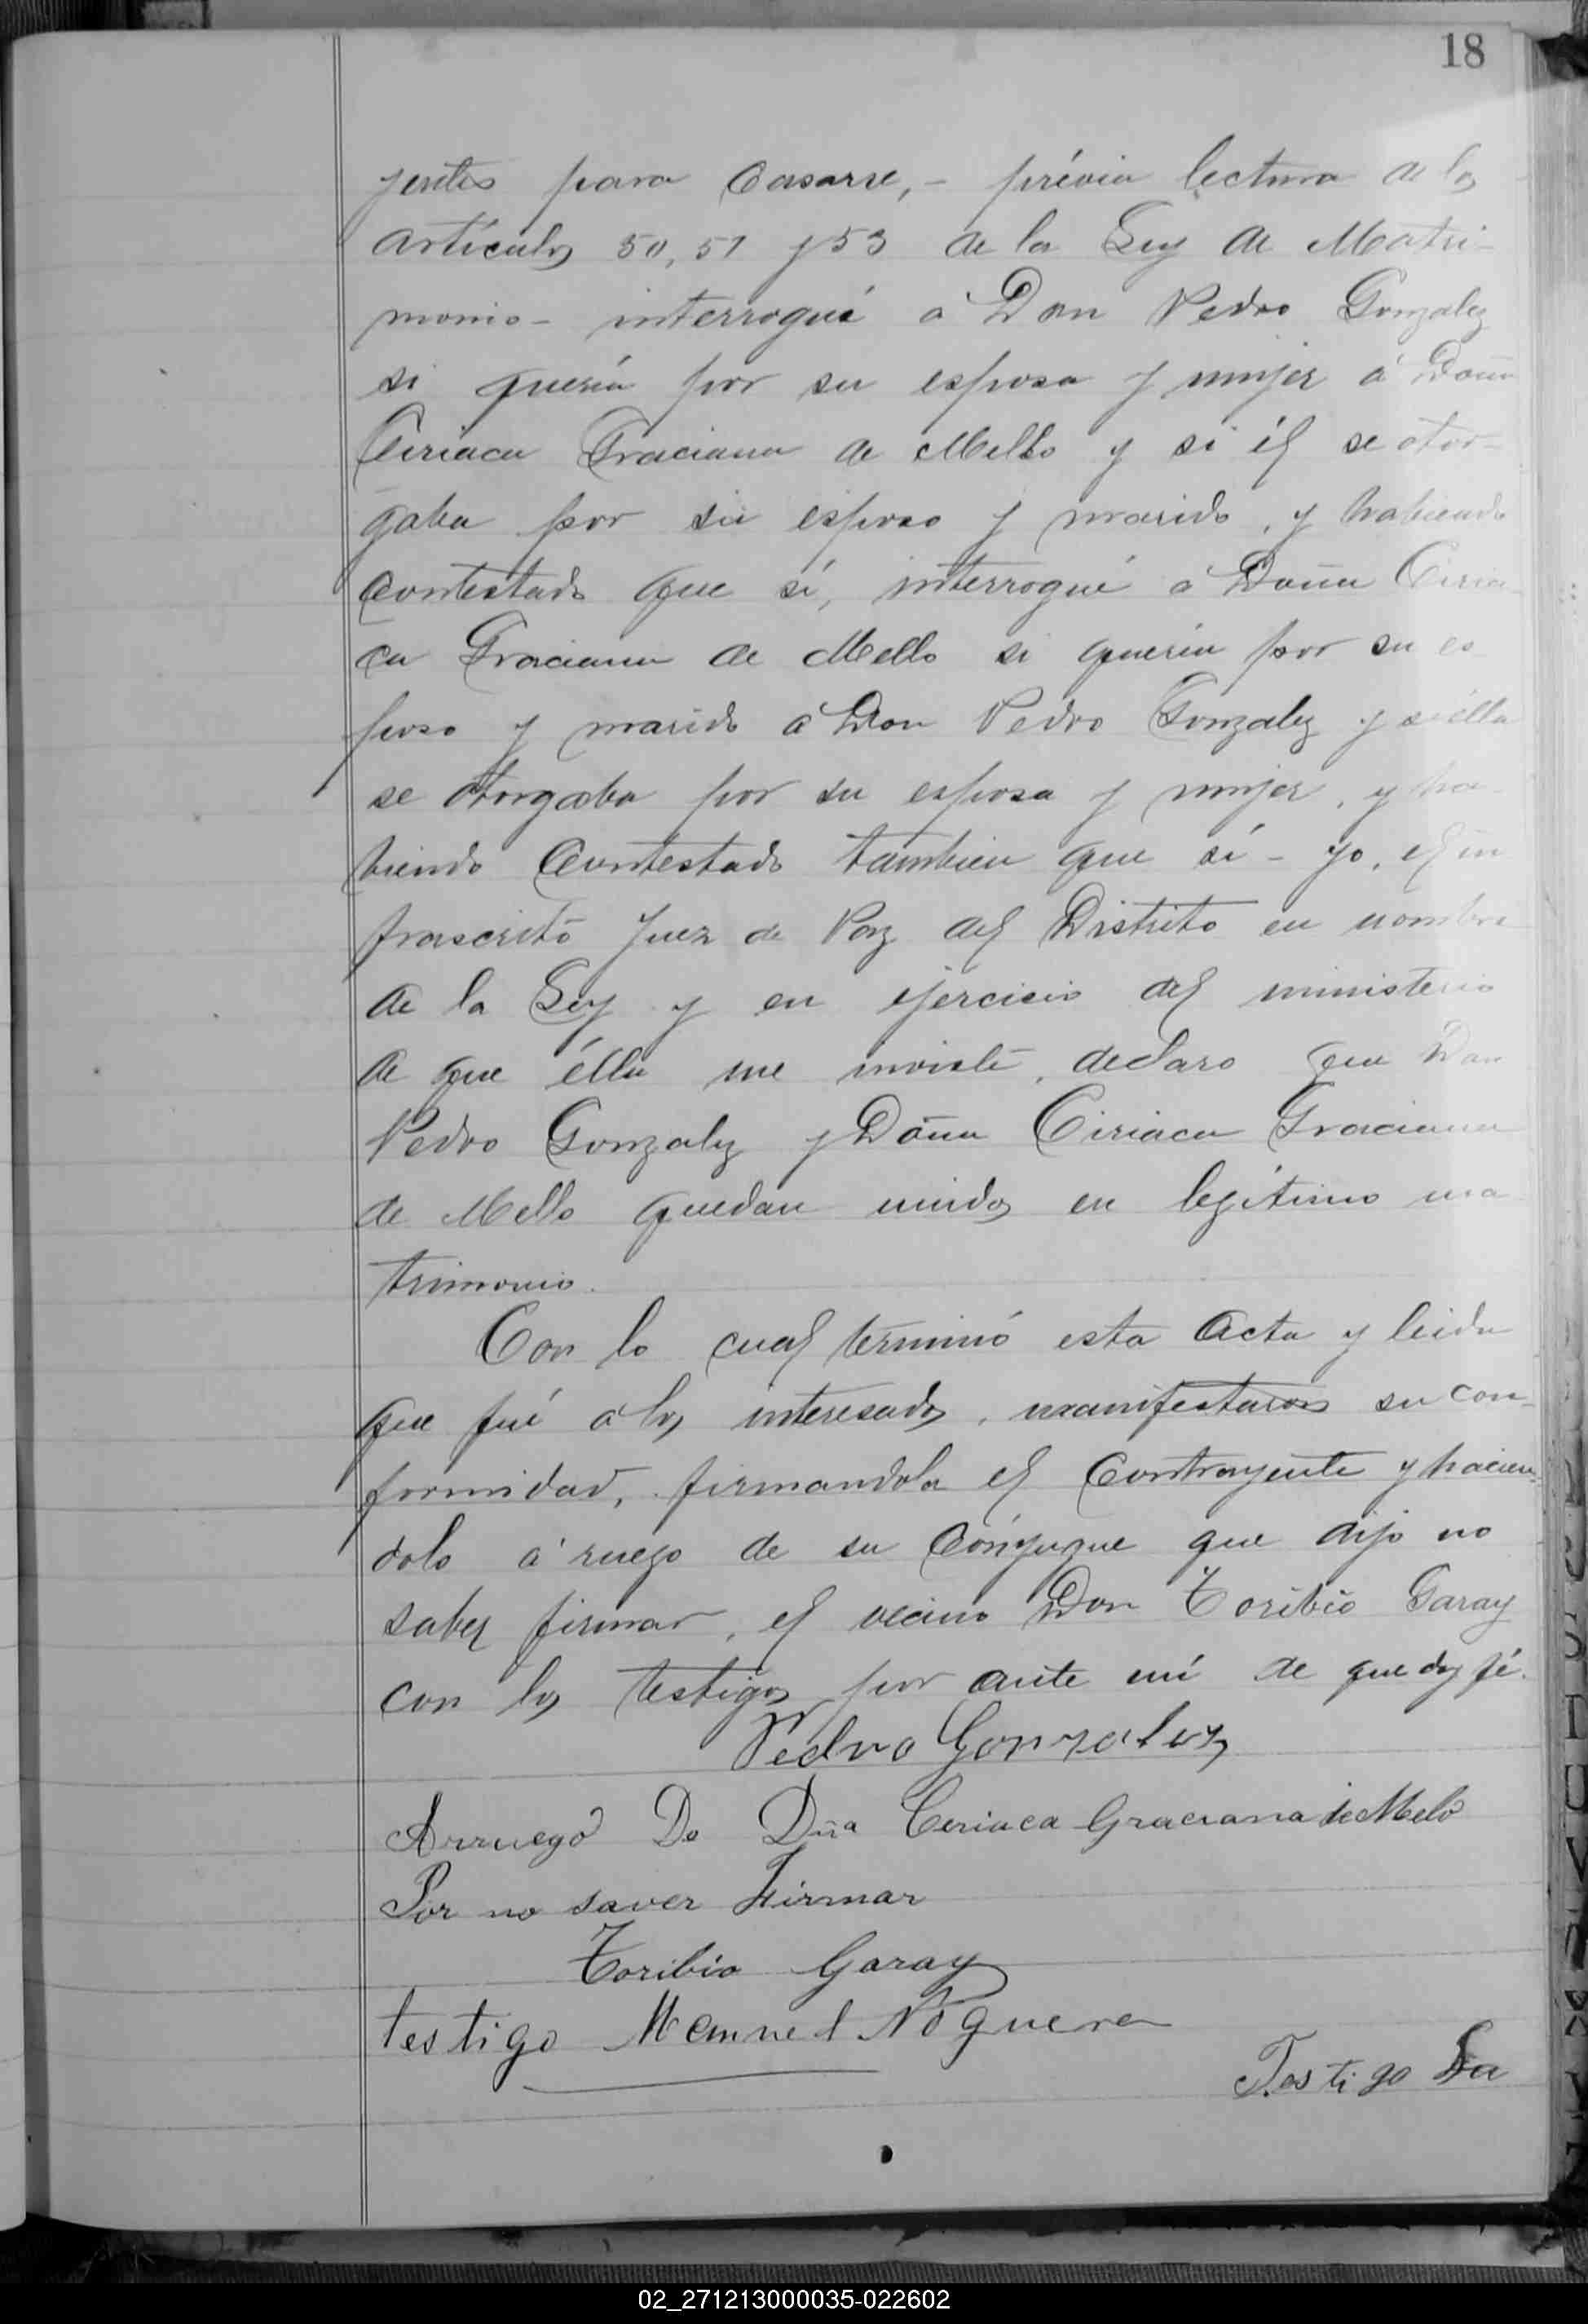 18
yentes para casarse, - prévia lectura de los
artículos 50, 51 y 53 de la Ley de Matri-
monio - interrogué á Don Pedro Gonzalez
si queria por su esposa y mujer á Doña
Ciriaca Graciana de Mello y si él se otor-
gaba por su esposo y marido, y habiendo
contestado que sí, interrogué á Doña Ciria-
ca Graciana de Mello si queria por su es-
poso y marido á Don Pedro Gonzalez y si élla
se otorgaba por su esposa y mujer, y ha-
biendo contestado tambien que sí - yo, el in
frascrito Juez de Paz del Distrito en nombre
de la Ley y en ejercicio del ministerio
de que élla me inviste, declaro que Don
Pedro Gonzalez y Doña Ciriaca Graciana
de Mello quedan unidos en legítimo ma
trimonio.
Con lo cual terminó esta acta y leida
que fué á los interesados, manifestaron su con-
formidad, firmandola el contrayente y hacien-
dolo á ruego de su cónyugue que dijo no
saber firmar, el vecino Don Toribio Garay
con los testigos por ante mí de que doy fé.
Pedro Gonzalez
Arruego De Dña Ceriaca Graciana de Melo
Por no saver Firmar
Toribio Garay
testigo Manuel Noguera
Testigo
02_271213000035-022602